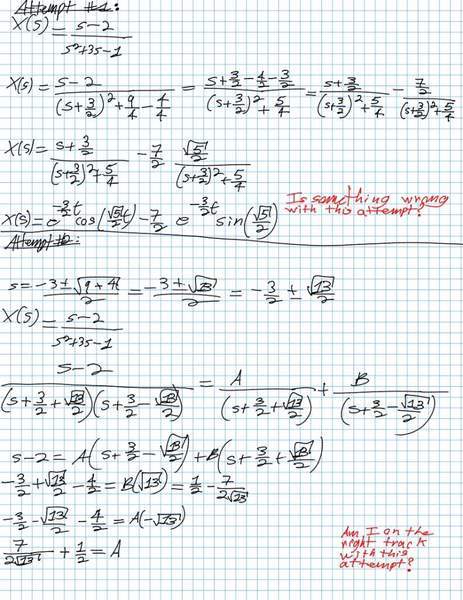 Attempt #1:
X(s) = s-2 / s²+3s-1
X(s) = s-2 / (s+3/2)²+9/4-4/4 = s+3/2-4/2-3/2 / (s+3/2)²+5/4 = s+3/2 / (s+3/2)²+5/4 - 7/2 / (s+3/2)²+5/4
X(s) = s+3/2 / (s+3/2)²+5/4 - 7/2 √5/2 / (s+3/2)²+5/4
X(s) = e^(-3/2 t) cos(√5/2 t) - 7/2 e^(-3/2 t) sin(√5/2)
Is something wrong
with this attempt?
Attempt #2:
s = -3±√9+4 / 2 = -3±√13 / 2 = -3/2 ± √13/2
X(s) = s-2 / s²+3s-1
s-2 / (s+3/2+√13/2)(s+3/2-√13/2) = A / (s+3/2+√13/2) + B / (s+3/2-√13/2)
s-2 = A(s+3/2-√13/2) + B(s+3/2+√13/2)
-3/2+√13/2-4/2 = B(√13) = 1/2 - 7/2√13
-3/2-√13/2-4/2 = A(-√13)
7/2√13 + 1/2 = A
Am I on the
right track
with this
attempt?